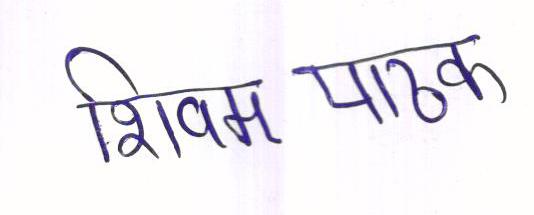 शिवम पाठक